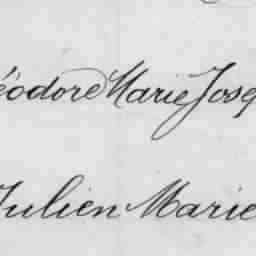 éodore Marie Josep
Julien Marie